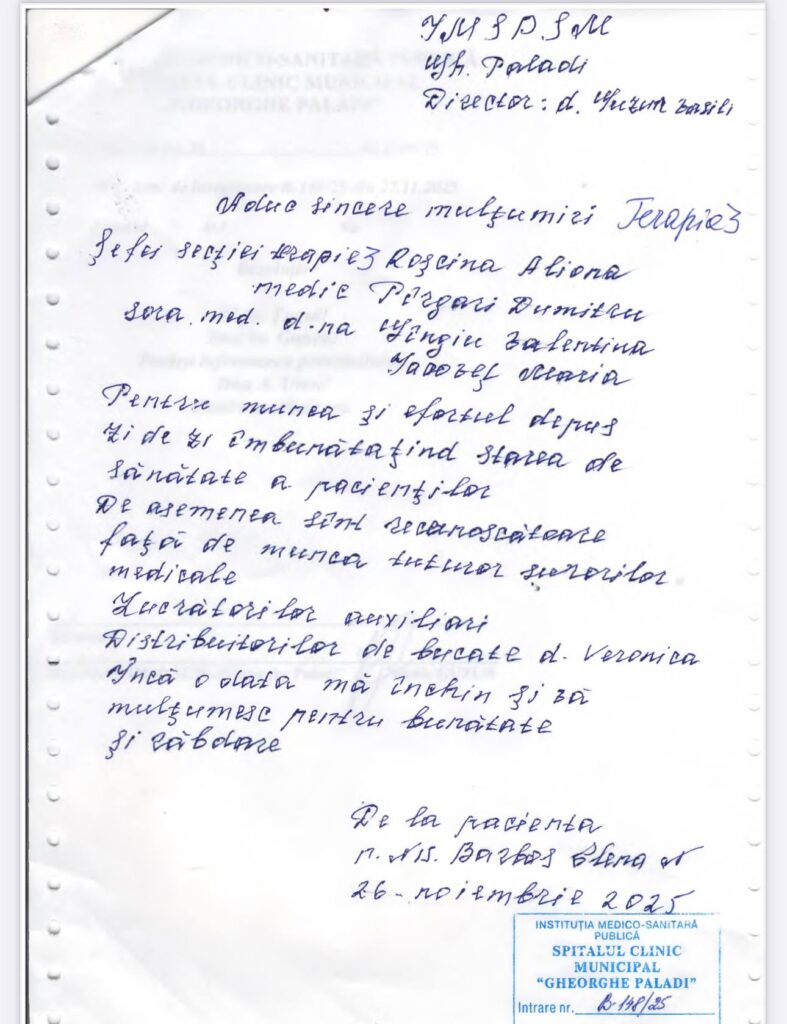 IMSPSM
Gh. Paladi
Director: d. Guzun Vasili
Aduc sincere mulțumiri Terapia 3
Șefei secției terapie 3 Roșcina Aliona
medic Pîrgari Dumitru
sora. med. d-na Gîngiu Valentina
Iacoveț Maria
Pentru munca și efortul depus
zi de zi îmbunătațind starea de
sănătate a pacienților
De asemenea sînt recunoscătoare
față de munca tuturor surorilor
medicale
Lucrătorilor auxiliari
Distribuitorilor de bucate d. Veronica
Încă o data mă închin și vă
mulțumesc pentru bunătate
și răbdare
De la pacienta
Barbos Elena
26-noiembrie 2025
INSTITUȚIA MEDICO-SANITARĂ
PUBLICĂ
SPITALUL CLINIC
MUNICIPAL
“GHEORGHE PALADI”
Intrare nr. B-148/25